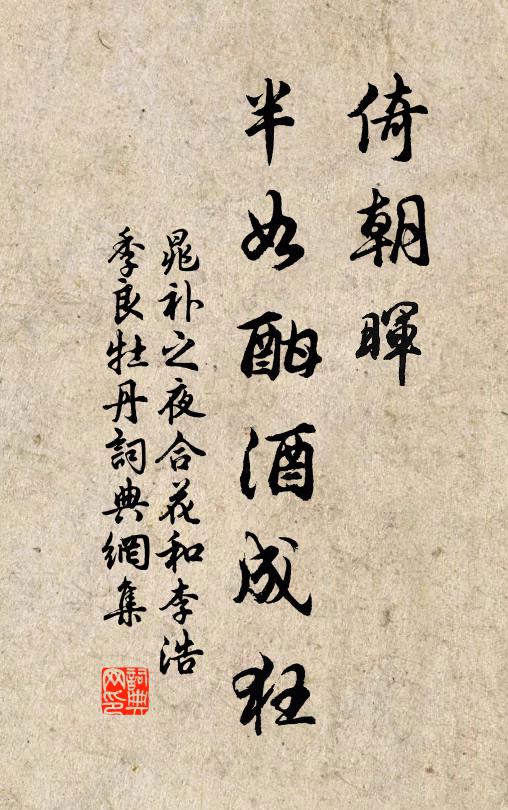 倚朝暉
半如酣酒成狂
晁补之夜合花和李浩
季良牡丹詞典網集
詞典
网印